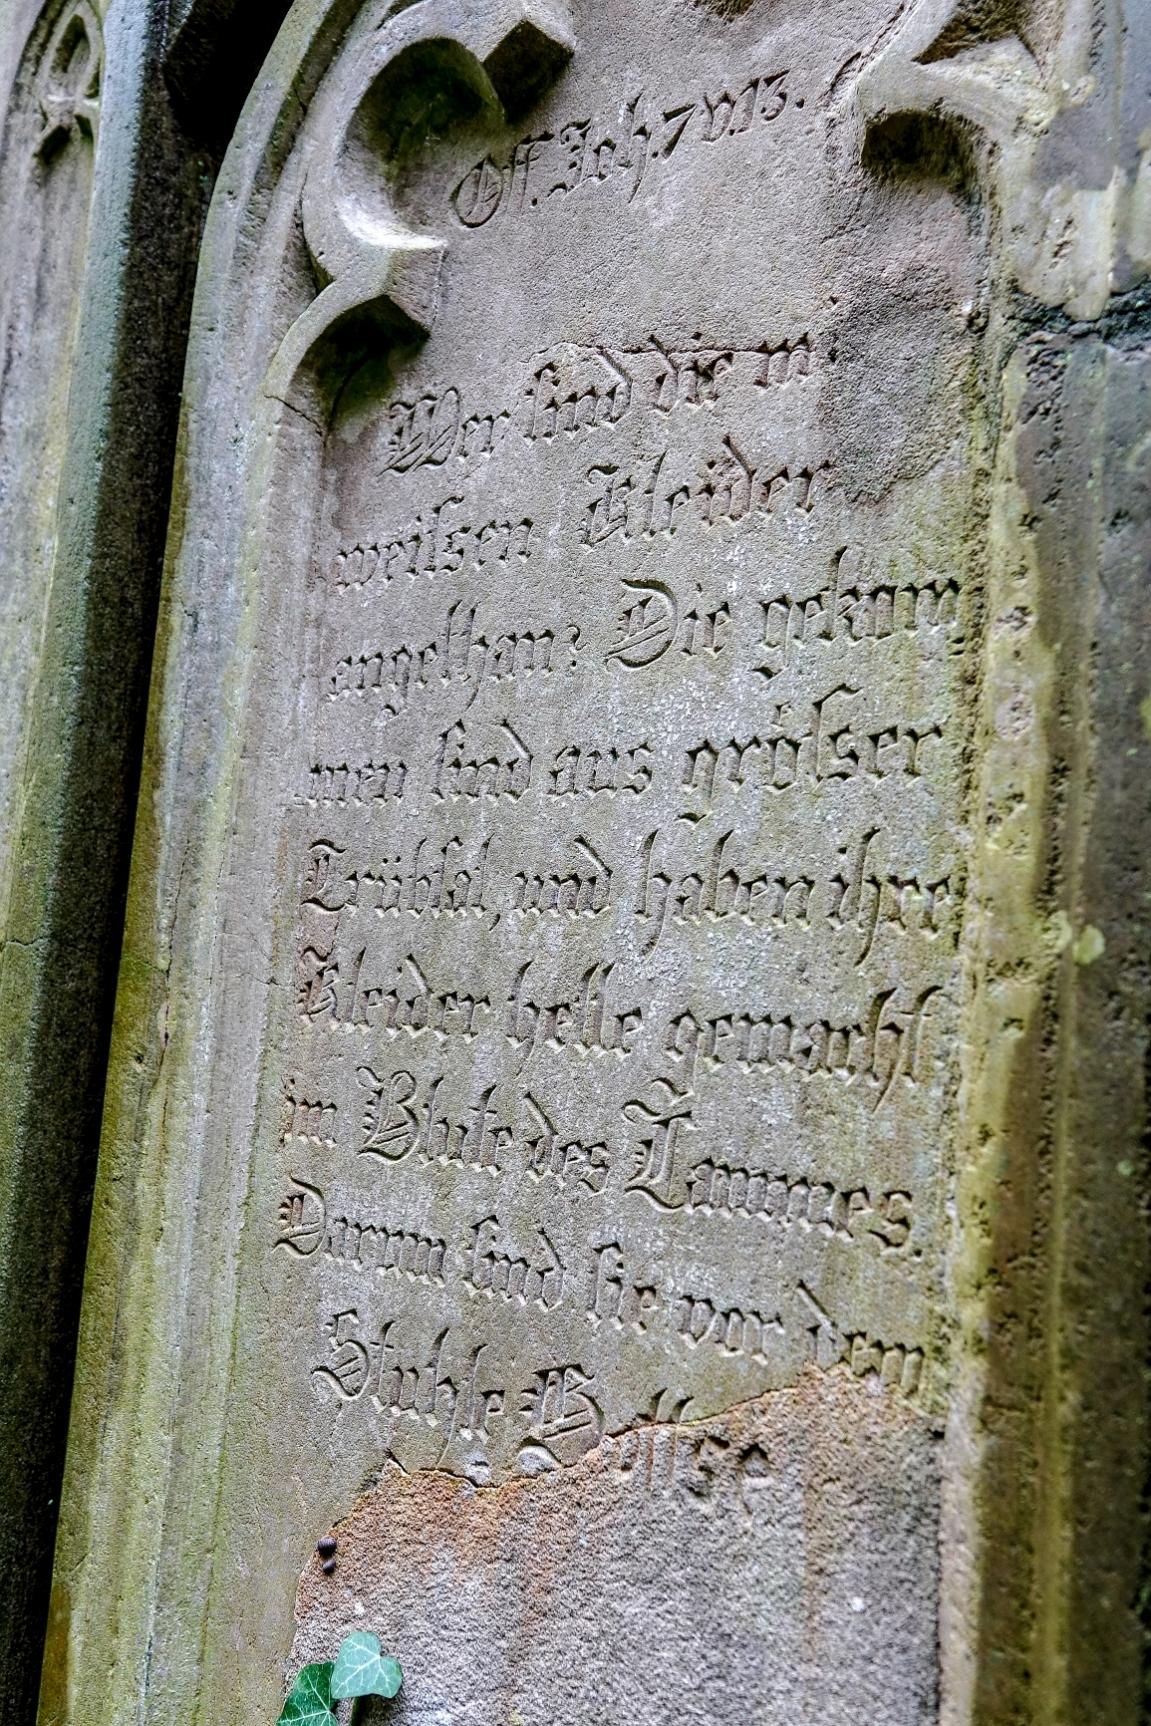 Off. Joh. 7 v. 13.
Wer sind die m
weiſsen Kleider
angethan? Die gekom
men sind aus gröſser
Trübsal, und haben ihre
Kleider helle gemacht
im Blute des Lammes
Darum sind sie vor dem
Stuhle